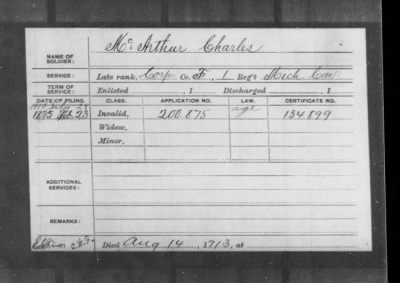 NAME OF SOLDIER: McArthur Charles
SERVICE: Late rank, Corp. Co. F, 1 Reg't Mich Cav.
TERM OF SERVICE: Enlisted , 1 Discharged , 1
DATE OF FILING. CLASS. APPLICATION NO. LAW. CERTIFICATE NO.
1875 Feb. 23 Invalid, 200.875 age 154.899
Widow,
Minor,
ADDITIONAL SERVICES:
REMARKS:
Died Aug 14, 1913, at